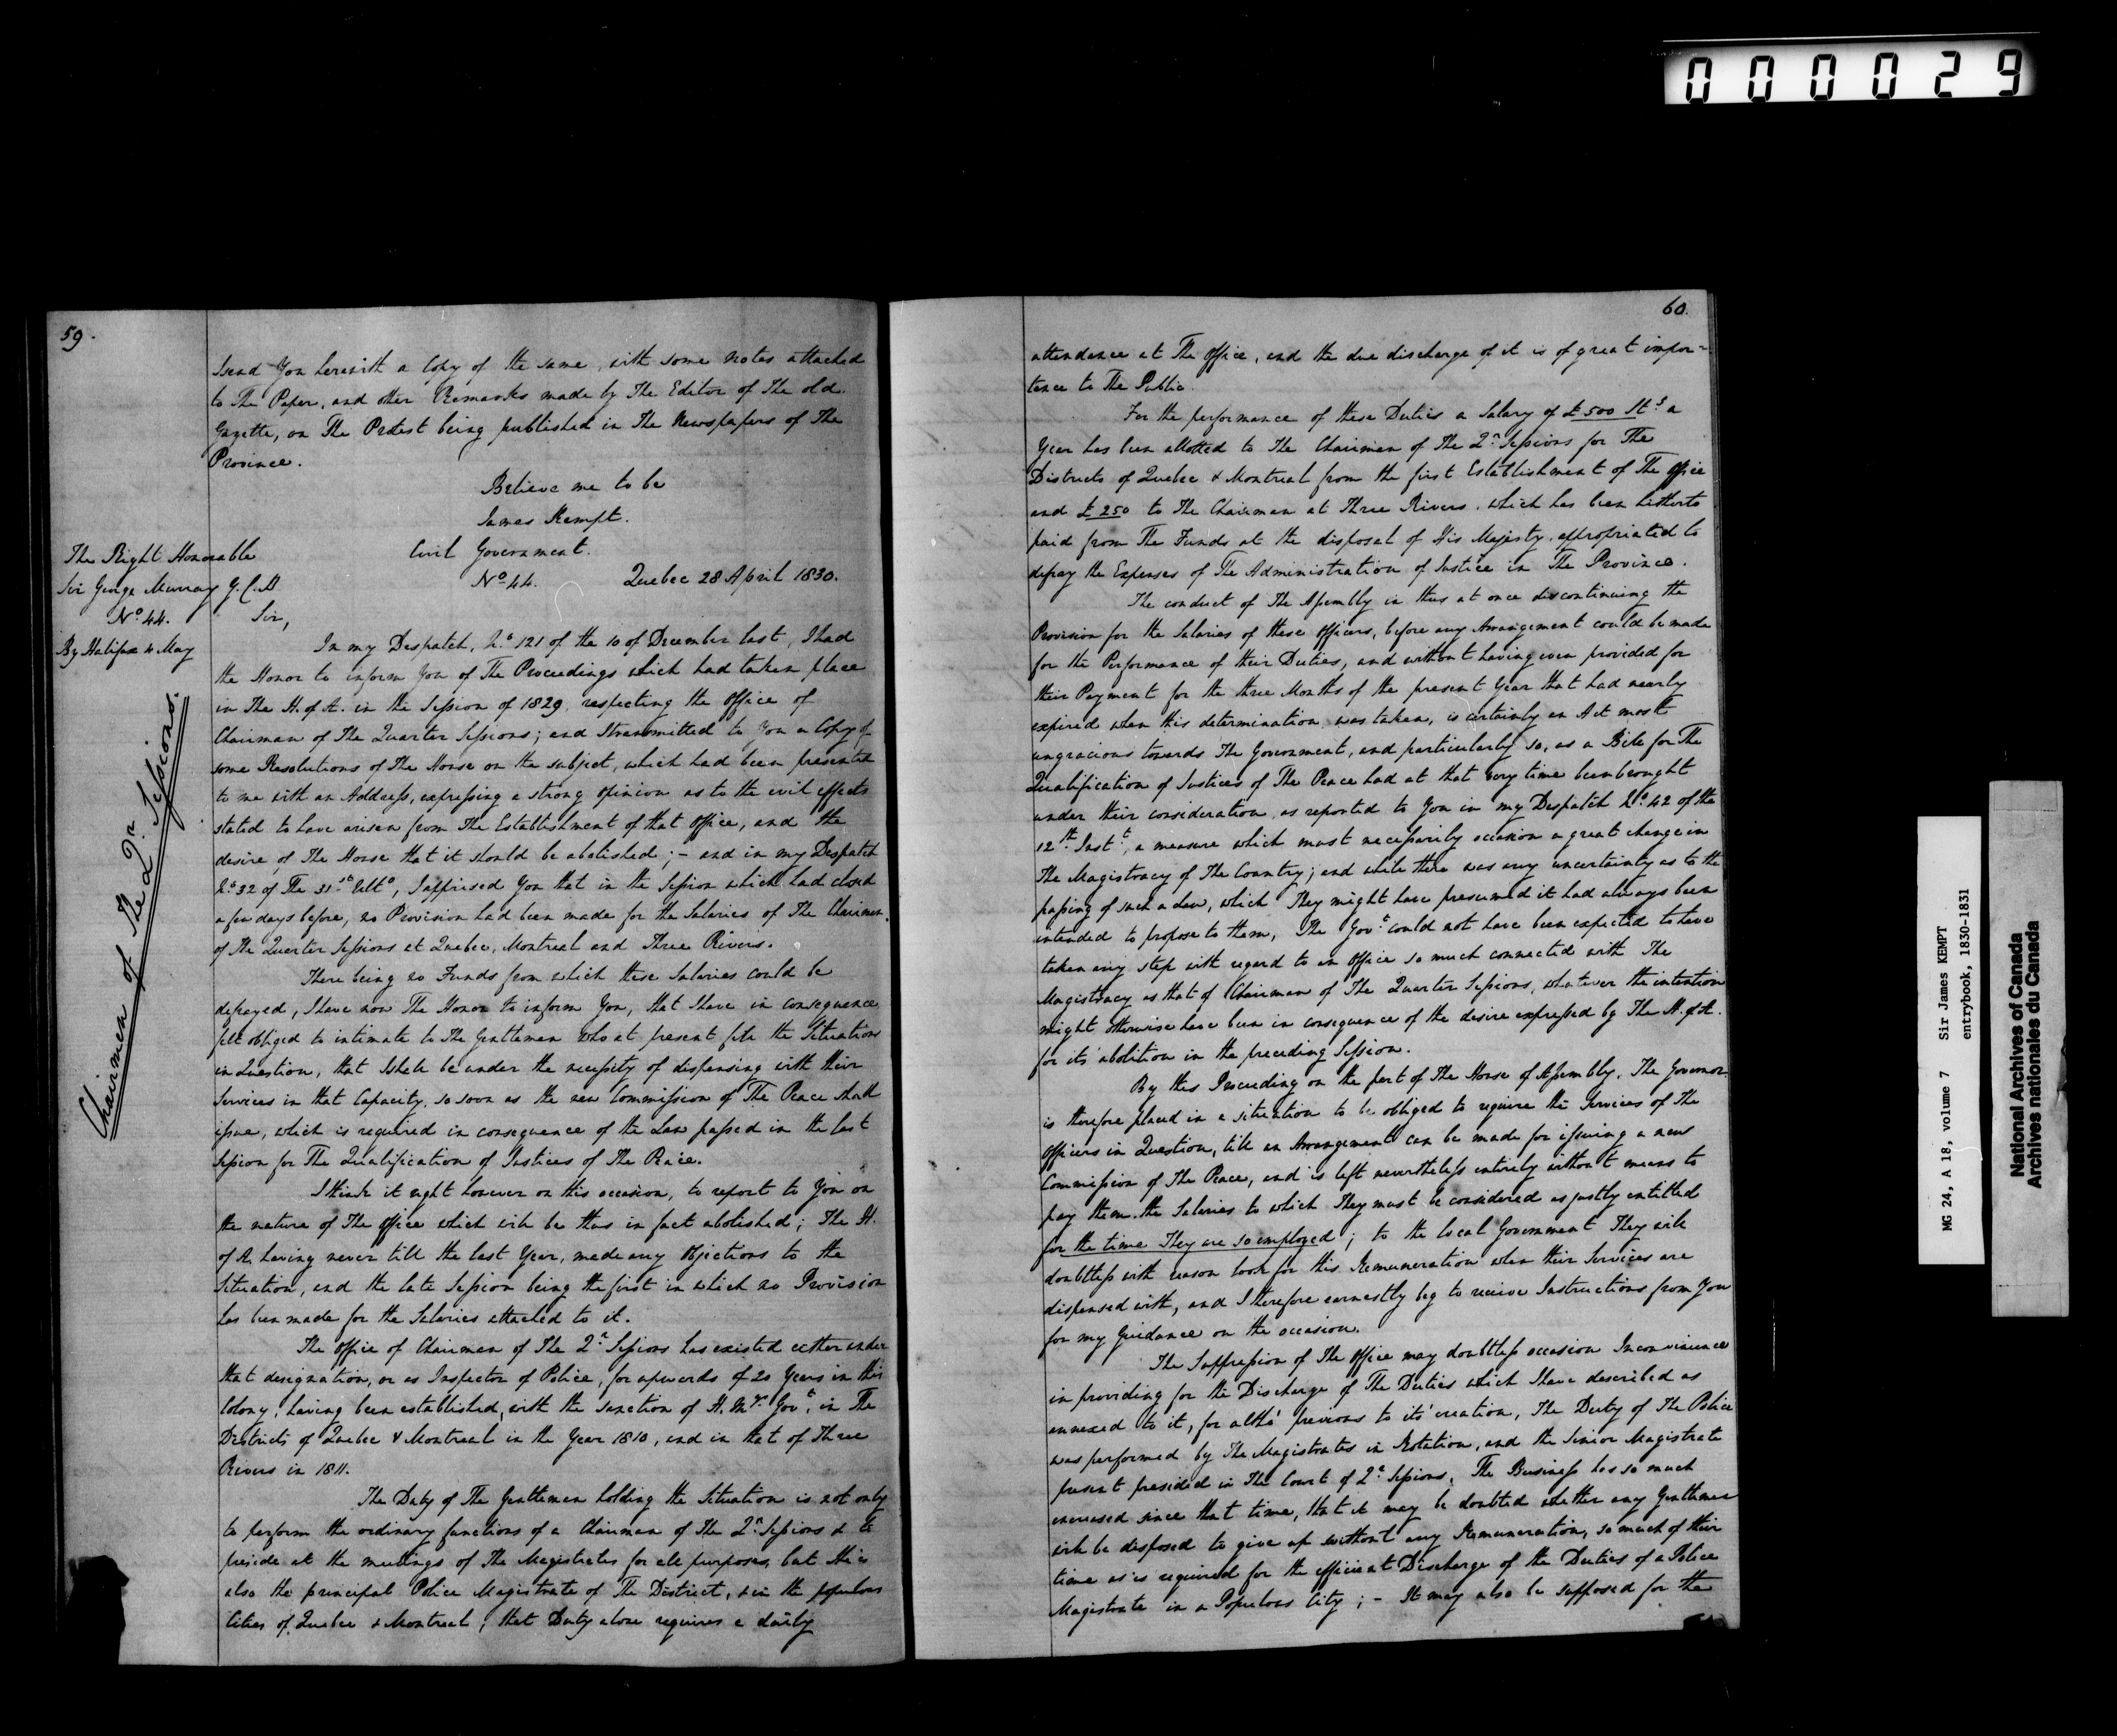 000029
59.
send You herewith a Copy of the same, with some notes attached
to The Paper, and other Remarks made by The Editor of The old
Gazette, on The Protest being published in The Newspapers of The
Province.
Believe me to be
James Kempt.
The Right Honorable
Sir George Murray G.C.B
No. 44.
By Halifax 4 May
Chairmen of The Qr. Sessions.
Civil Government.
No. 44. Quebec 28 April 1830.
Sir,
In my Despatch, No. 121 of the 10 of December last, I had
the Honor to inform You of The Proceedings which had taken place
in The H. of A. in the Session of 1829, respecting the Office of
Chairman of The Quarter Sessions; and transmitted to You a Copy of
some Resolutions of The House on the subject, which had been presented
to me with an Address, expressing a strong opinion as to the evil effects
stated to have arisen from The Establishment of that Office, and the
desire of The House that it should be abolished; - and in my Despatch
No. 32 of The 31st. Ulto, I apprised You that in the Session which had closed
a few days before, no Provision had been made for the Salaries of The Chairmen
of The Quarter Sessions at Quebec, Montreal and Three Rivers.
There being no Funds from which these Salaries could be
defrayed, I have now The Honor to inform You, that I have in consequence
felt obliged to intimate to The Gentlemen who at present fill the Situations
in Question, that I shall be under the necessity of dispensing with their
Services in that Capacity, so soon as the new Commission of The Peace shall
issue, which is required in consequence of the Law passed in the last
Session for The Qualification of Justices of The Peace.
I think it right however on this occasion, to report to You on
the nature of The Office which will be thus in fact abolished; The H.
of A. having never till the last Year, made any Objections to the
Situation, and the late Session being the first in which no Provision
has been made for the Salaries attached to it.
The Office of Chairman of The Qr. Sessions has existed either under
that designation, or as Inspector of Police, for upwards of 20 Years in this
Colony; having been established, with the sanction of H. My. Govt. in The
Districts of Quebec & Montreal in the Year 1810, and in that of Three
Rivers in 1811.
The Duty of The Gentlemen holding the Situation is not only
to perform the ordinary functions of a Chairman of The Qr. Sessions & to
preside at the meetings of The Magistrates for all purposes, but He is
also the principal Police Magistrate of The District, & in the populous
Cities of Quebec & Montreal, that Duty alone requires a daily
60.
attendance at The Office, and the due discharge of it is of great impor=
tance to The Public.
For the performance of these Duties a Salary of £500 Stg. a
Year has been allotted to The Chairmen of The Qr. Sessions for The
Districts of Quebec & Montreal from the first Establishment of The Office
and £250 to The Chairman at Three Rivers, which has been hitherto
paid from The Funds at the disposal of His Majesty, appropriated to
defray the Expenses of The Administration of Justice in The Province.
The conduct of The Assembly in thus at once discontinuing the
Provision for the Salaries of these Officers, before any Arrangement could be made
for the Performance of their Duties, and without having even provided for
their Payment for the three Months of the present Year that had nearly
expired when this determination was taken, is certainly an Act most
ungracious towards The Government, and particularly so, as a Bill for The
Qualification of Justices of The Peace had at that very time been brought
under their consideration, as reported to You in my Despatch No. 42 of the
12th. Inst., a measure which must necessarily occasion a great change in
The Magistracy of The Country; and while there was any uncertainty as to the
passing of such a Law, which They might have presumed it had always been
intended to propose to them, The Govt. could not have been expected to have
taken any step with regard to an Office so much connected with The
Magistracy as that of Chairman of The Quarter Sessions, whatever the intention
might otherwise have been in consequence of the desire expressed by The H. of A.
for its' abolition in the preceding Session.
By this Proceeding on the part of The House of Assembly, The Governor
is therefore placed in a situation to be obliged to require the Services of The
Officers in Question, till an Arrangement can be made for issuing a new
Commission of The Peace, and is left nevertheless entirely without means to
pay them the Salaries to which They must be considered as justly entitled
for the time They are so employed; to the local Government They will
doubtless with reason look for this Remuneration when their Services are
dispensed with, and I therefore earnestly beg to receive Instructions from You
for my Guidance on the occasion.
The Suppression of The Office may doubtless occasion Inconvenience
in providing for the Discharge of The Duties which I have described as
annexed to it, for altho' previous to its' creation, The Duty of The Police
was performed by The Magistrates in Rotation, and the Senior Magistrate
present presided in The Court of Qr. Sessions, The Business has so much
increased since that time, that it may be doubted whether any Gentleman
will be disposed to give up without any Remuneration, so much of their
time as is required for the efficient Discharge of the Duties of a Police
Magistrate in a Populous City; - It may also be supposed for the
MG 24, A 18, volume 7 Sir James KEMPT
entrybook, 1830-1831
National Archives of Canada
Archives nationales du Canada